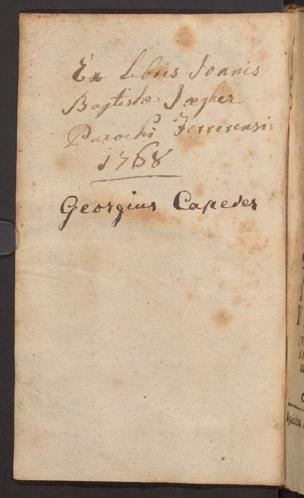 Ex Libris Joannis
Baptistæ Jægher
Parochi Ferrerensis
1768
Georgius Capeder